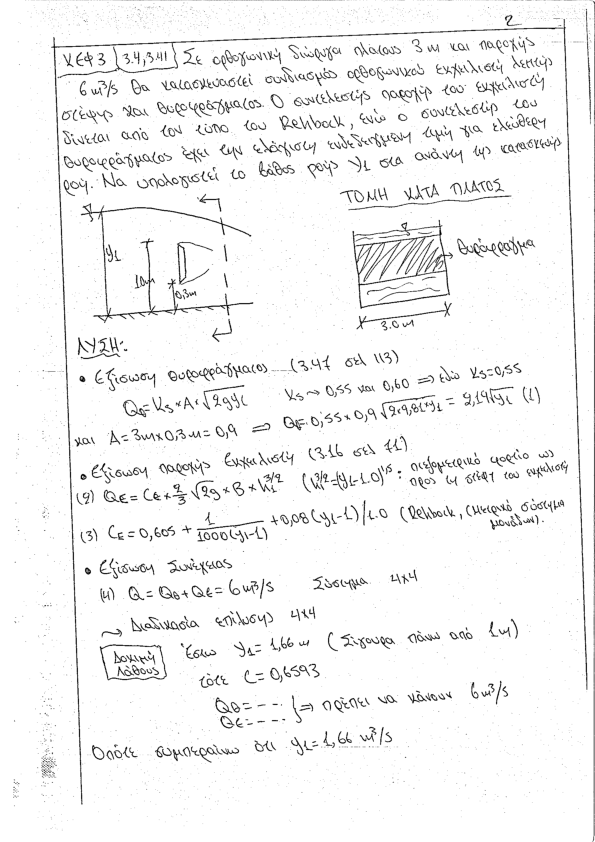 2
ΚΕΦ 3 3.4, 3.41 Σε ορθογωνική διώρυγα πλάτους 3 m και παροχής
6 m³/s θα κατασκευαστεί συνδιασμός ορθογωνικού εκχειλιστή λεπτής
στέψης και θυροφράγματος. Ο συντελεστής παροχής του εκχειλιστή
δίνεται από τον τύπο του Rehbock, ενώ ο συντελεστής του
θυροφράγματος έχει την ελάχιστη ενδεδειγμένη τιμή για ελεύθερη
ροή. Να υπολογιστεί το βάθος ροής y1 στα ανάντη της κατασκευής
ΤΟΜΗ ΚΑΤΑ ΠΛΑΤΟΣ
y1
10m
0,3m
θυρόφραγμα
3.0 m
ΛΥΣΗ:
• Εξίσωση θυροφράγματος (3.47 σελ 113)
Qθ = Ks × A × √2gy1 Ks ~> 0,55 και 0,60 => εδώ Ks=0,55
και A = 3m×0,3m = 0,9 => Qθ = 0,55 × 0,9 √2×9,81×y1 = 2,19√y1 (1)
• Εξίσωση παροχής Εκχειλιστή (3.16 σελ 71)
(2) QE = CE × 2/3 √2g × B × h1^3/2 (h1^3/2 = (y1-1.0)^1,5 : πιεζομετρικό φορτίο ως
προς τη στέψη του εκχειλιστή
(3) CE = 0,605 + 1/1000(y1-1) + 0,08(y1-1)/1.0 (Rehbock, (Μετρικό σύστημα
μονάδων).
• Εξίσωση Συνέχειας
(4) Q = Qθ + QE = 6 m³/s Σύστημα 4x4
~> Διαδικασία επίλυσης 4x4
Δοκιμή
Λάθους
Έστω y1 = 1,66 m (Σίγουρα πάνω από 1m)
τότε C = 0,6593
Qθ = - - ·
QE = - - - } => πρέπει να κάνουν 6 m³/s
Οπότε συμπεραίνω ότι y1 = 1,66 m³/s